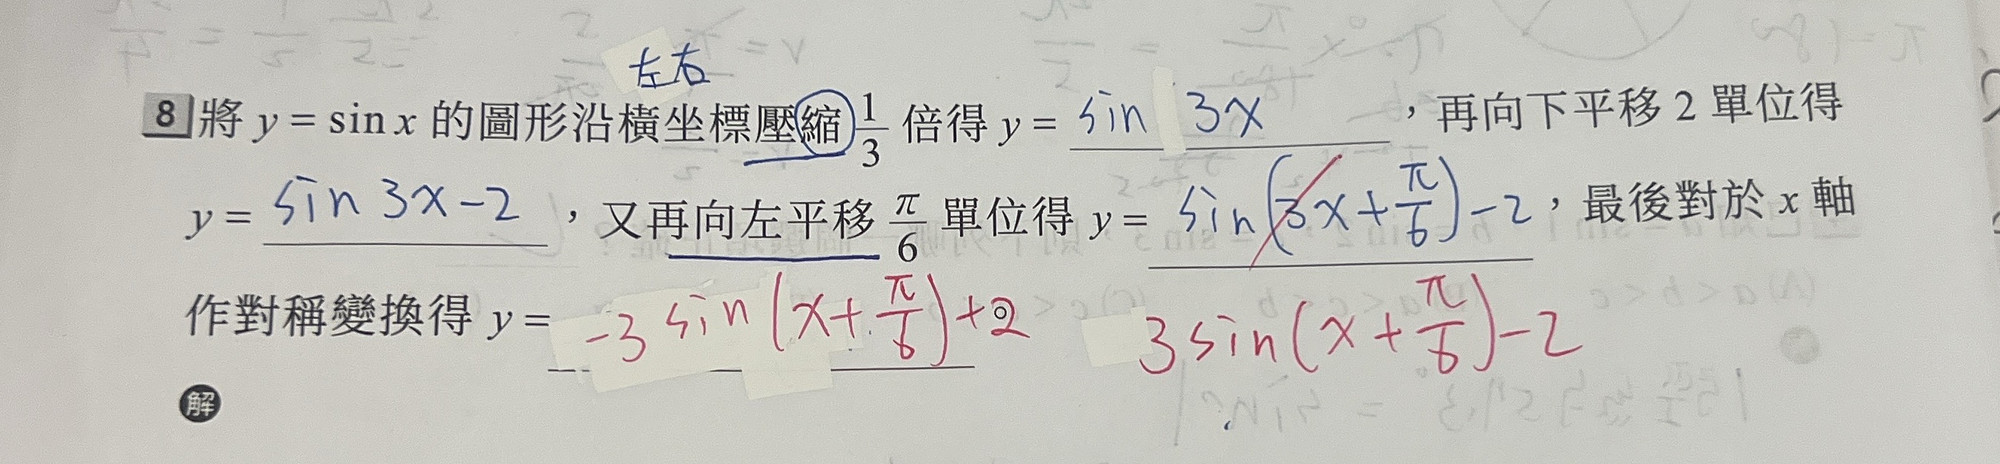 左右
8 將 y = sin x 的圖形沿橫坐標壓縮 1/3 倍得 y = sin 3x ，再向下平移 2 單位得
y = sin 3x-2 ，又再向左平移 π/6 單位得 y = sin(3x+π/6)-2，最後對於 x 軸
作對稱變換得 y = -3 sin(x+π/6)+2 3 sin(x+π/6)-2
解